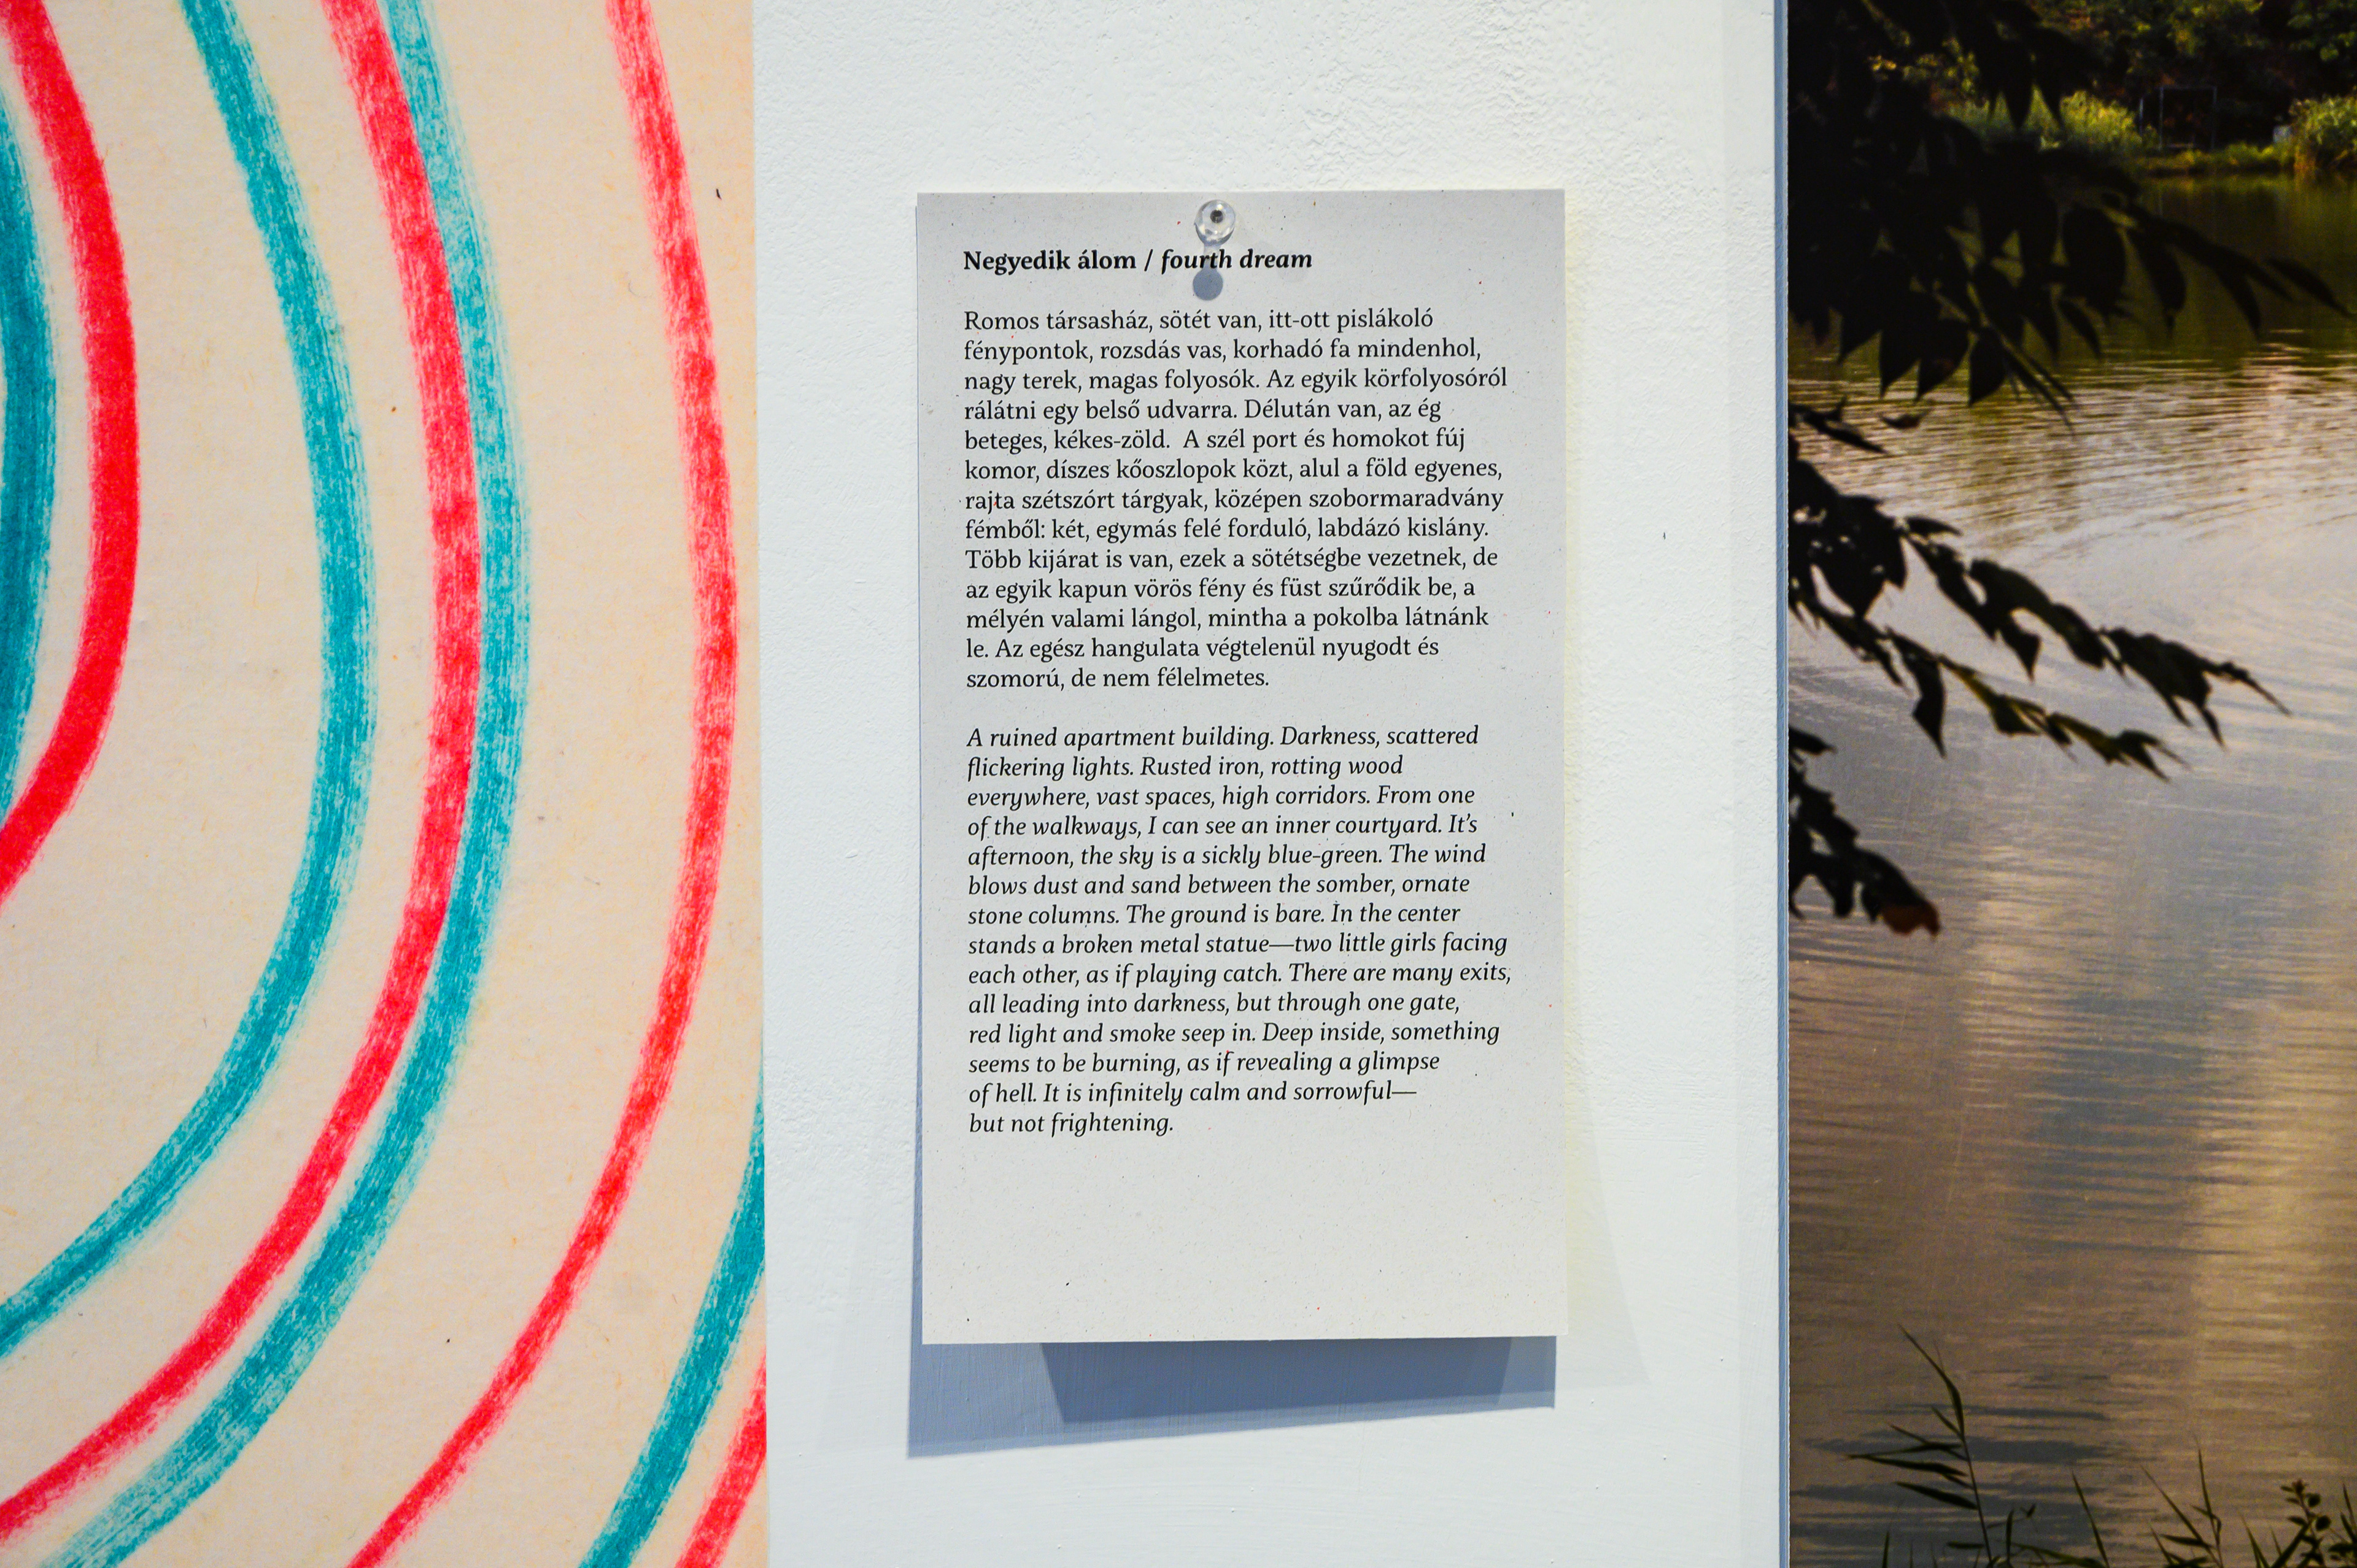 Negyedik álom / fourth dream
Romos társasház, sötét van, itt-ott pislákoló
fénypontok, rozsdás vas, korhadó fa mindenhol,
nagy terek, magas folyosók. Az egyik körfolyosóról
rálátni egy belső udvarra. Délután van, az ég
beteges, kékes-zöld.  A szél port és homokot fúj
komor, díszes kőoszlopok közt, alul a föld egyenes,
rajta szétszórt tárgyak, középen szobormaradvány
fémből: két, egymás felé forduló, labdázó kislány.
Több kijárat is van, ezek a sötétségbe vezetnek, de
az egyik kapun vörös fény és füst szűrődik be, a
mélyén valami lángol, mintha a pokolba látnánk
le. Az egész hangulata végtelenül nyugodt és
szomorú, de nem félelmetes.
A ruined apartment building. Darkness, scattered
flickering lights. Rusted iron, rotting wood
everywhere, vast spaces, high corridors. From one
of the walkways, I can see an inner courtyard. It's
afternoon, the sky is a sickly blue-green. The wind
blows dust and sand between the somber, ornate
stone columns. The ground is bare. In the center
stands a broken metal statue—two little girls facing
each other, as if playing catch. There are many exits,
all leading into darkness, but through one gate,
red light and smoke seep in. Deep inside, something
seems to be burning, as if revealing a glimpse
of hell. It is infinitely calm and sorrowful—
but not frightening.